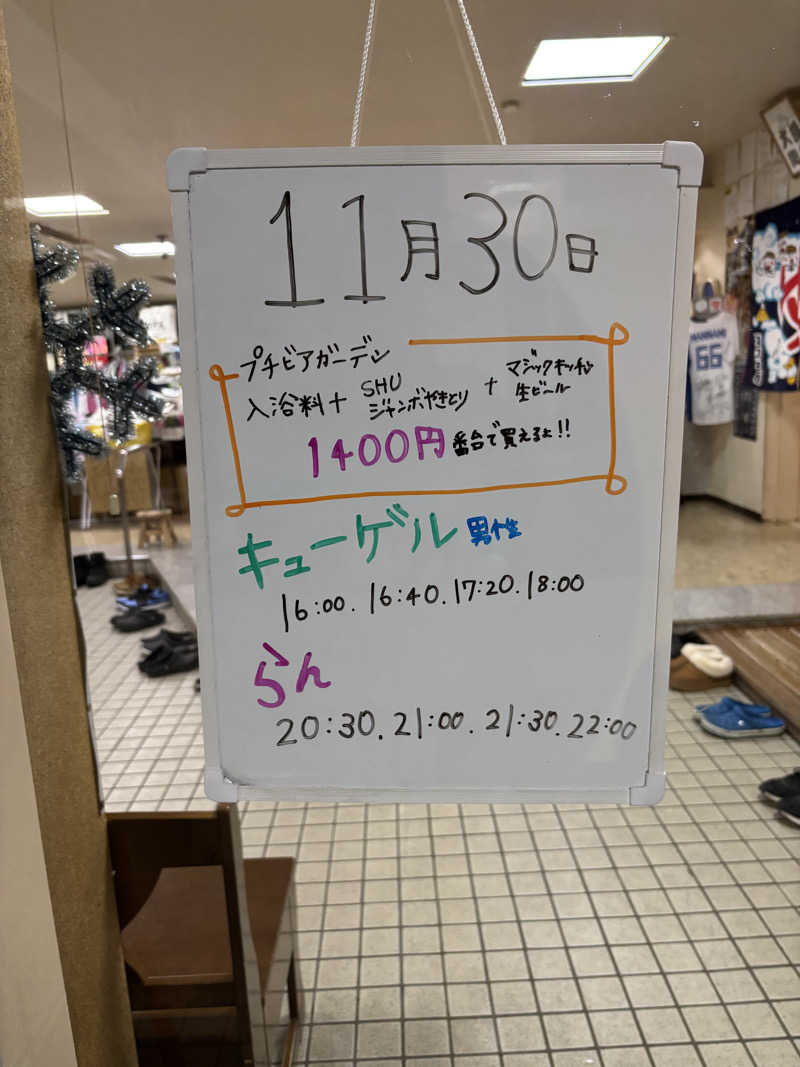 11月30日
プチビアガーデン
入浴料+ SHU ジャンボやきとり + マジックキッチン 生ビール
1400円 番台で買えるよ!!
キューゲル 男性
16:00. 16:40. 17:20. 18:00
らん
20:30. 21:00. 21:30. 22:00
66